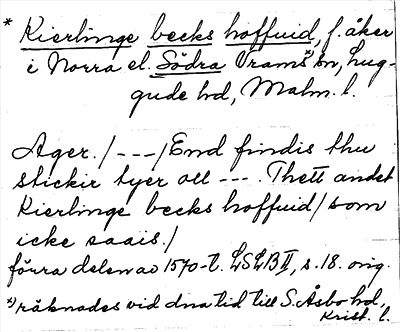 * Kierlinge becks hoffuid, f. åker
i Norra el. Södra Vrams* sn, Lug-
gude hd, Malm. l.
Ager. / --- / End findis thu
stickir tyer oll --- . Thett andet
Kierlinge becks hoffuid / som
icke saais. /
förra delen av 1570-t. LSLB II, s. 18. orig.
*) räknades vid dna tid till S. Åsbo hd,
Krist. l.